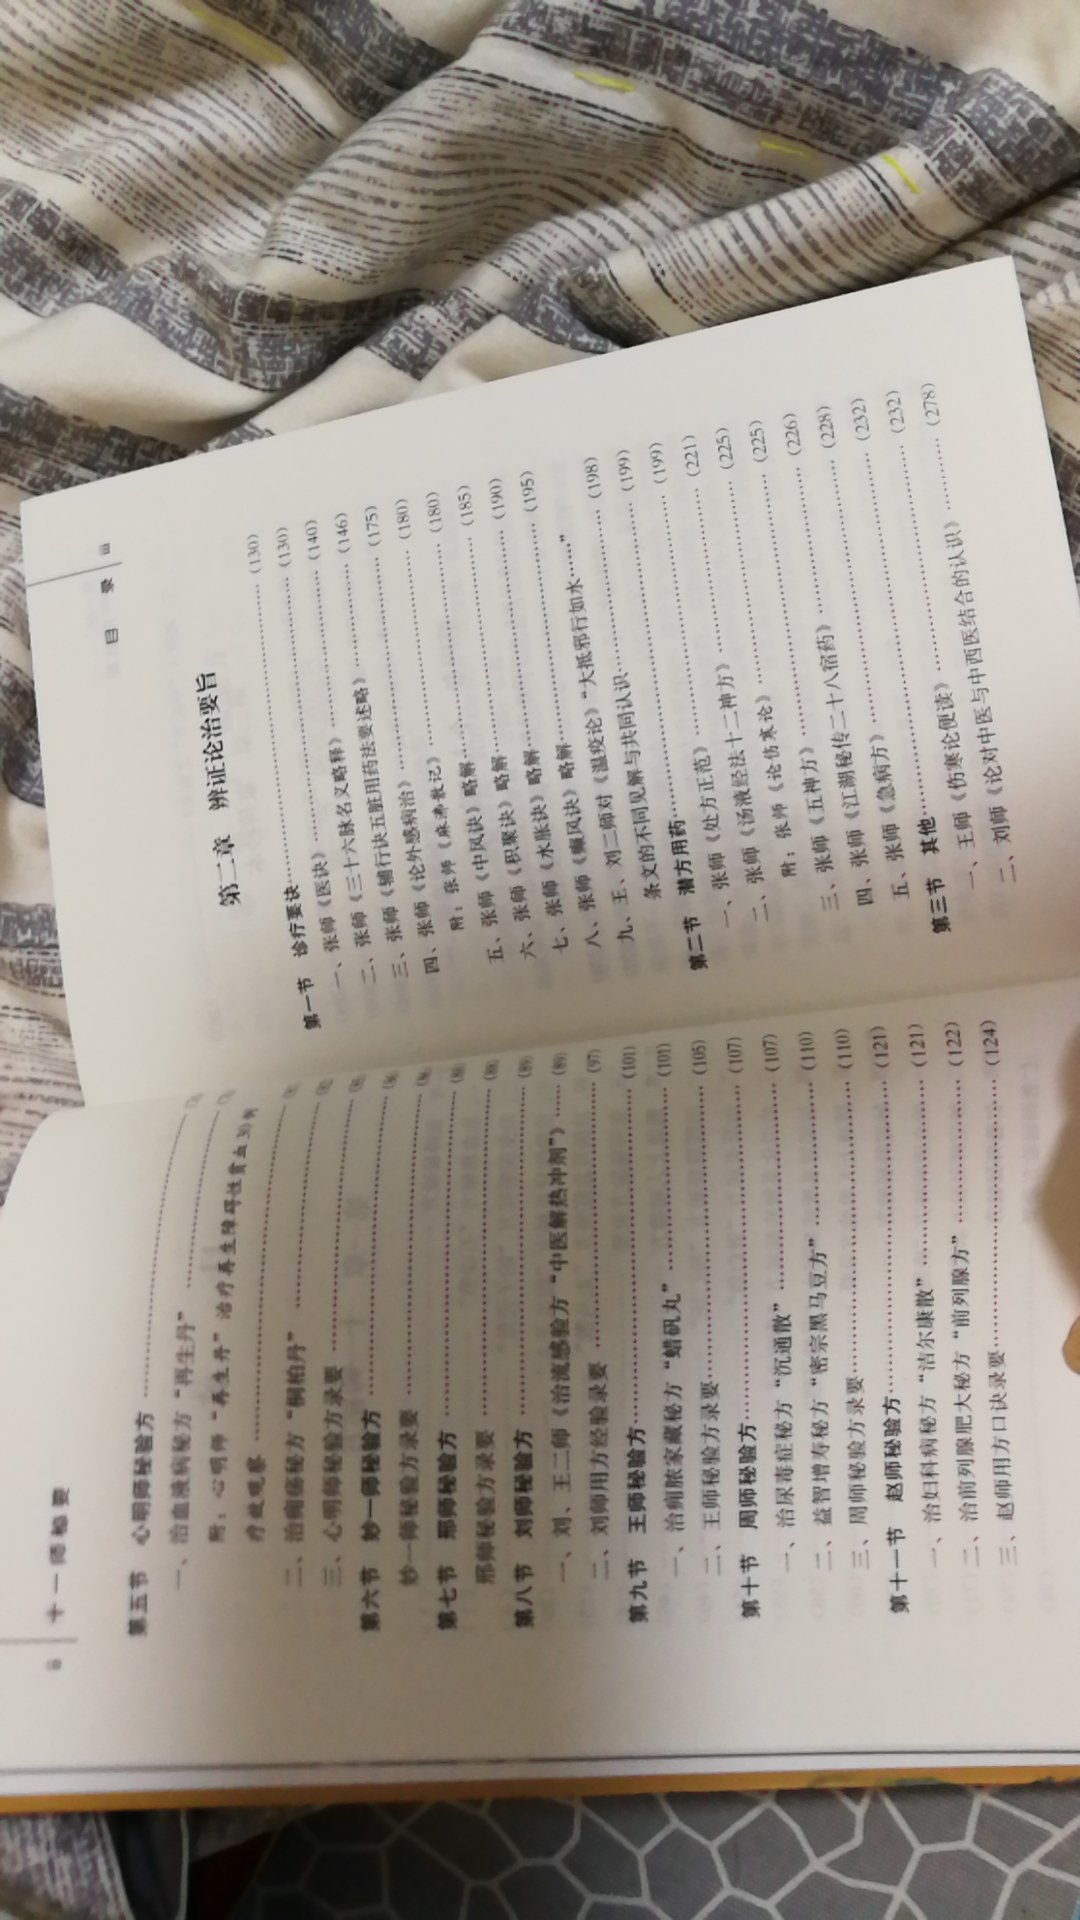 十一师秘要
第五节 心明师秘验方
一、治血液病秘方“再生丹”
附：心明师“再生丹”治疗再生障碍性贫血30例
疗效观察
二、治痢疡秘方“桐柏丹”
三、心明师秘验方录要
第六节 妙一师秘验方
妙一师秘验方录要
第七节 邢师秘验方 (88)
邢师秘验方录要 (88)
第八节 刘师秘验方 (89)
一、刘、王二师《治流感验方“中医解热冲剂”》 (89)
二、刘师用方经验录要 (97)
第九节 王师秘验方 (101)
一、治痢脓家藏秘方“蜡矾丸” (101)
二、王师秘验方录要 (105)
第十节 周师秘验方 (107)
一、治尿毒症秘方“沉通散” (107)
二、益智增寿秘方“密宗黑马豆方” (110)
三、周师秘验方录要 (110)
第十一节 赵师秘验方 (121)
一、治妇科病秘方“洁尔康散” (121)
二、治前列腺肥大秘方“前列腺方” (122)
三、赵师用方口诀录要 (124)
目录
第二章 辨证论治要旨
(130)
第一节 诊疗要诀 (130)
一、张师《医诀》 (140)
二、张师《三十六脉名义略释》 (146)
三、张师《辅行诀五脏用药法要述略》 (175)
四、张师《论外感病治》 (180)
附：张师《麻沸散记》 (180)
五、张师《中风诀》略解 (185)
六、张师《积聚诀》略解 (190)
七、张师《水胀诀》略解 (195)
八、张师《癫风诀》略解
九、王、刘二师对《温疫论》“大抵邪行如水……” (198)
条文的不同见解与共同认识 (199)
第二节 潜方用药 (199)
一、张师《处方正范》 (221)
二、张师《汤液经法十二神方》 (225)
附：张师《论伤寒论》 (225)
三、张师《五神方》 (226)
四、张师《江湖秘传二十八宿药》 (228)
五、张师《急病方》 (232)
第三节 其他 (232)
一、王师《伤寒论便读》 (278)
二、刘师《论对中医与中西医结合的认识》